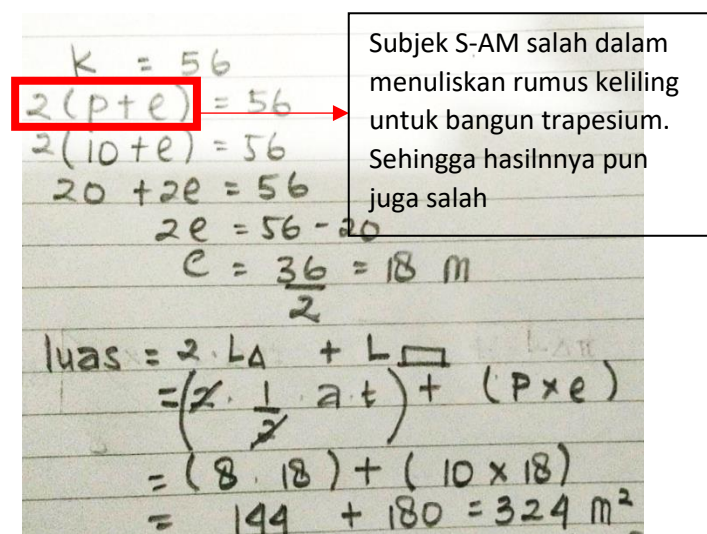 K = 56
2(p+e) = 56
2(10+e) = 56
20 + 2e = 56
2e = 56 - 20
e = 36/2 = 18 m
luas = 2. L△ + L▭
= (2. 1/2 a.t) + (P x e)
= (8. 18) + (10 x 18)
= 144 + 180 = 324 m²
Subjek S-AM salah dalam
menuliskan rumus keliling
untuk bangun trapesium.
Sehingga hasilnnya pun
juga salah